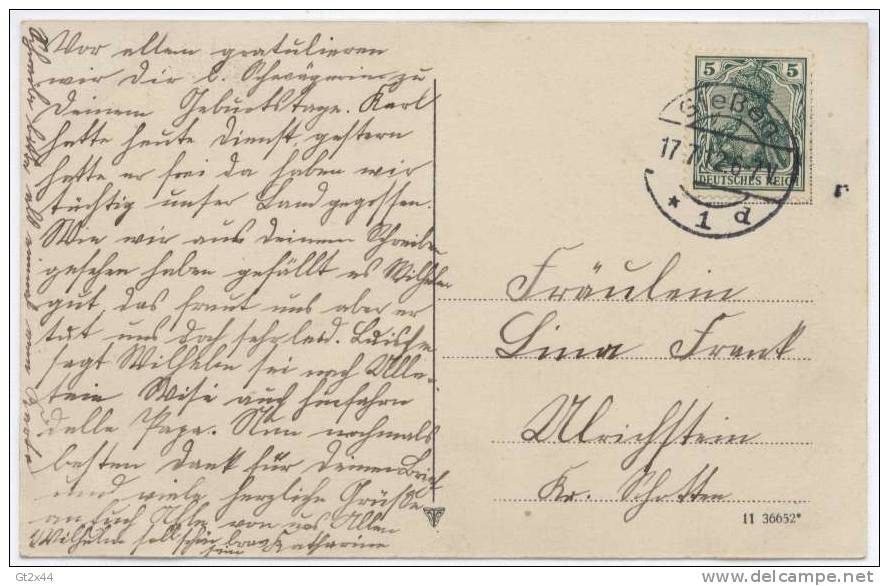 Vor allem gratulieren
wir Dir l. Schwägerin zu
Deinem Geburtstage. Karl
hatte heute Dienst, gestern
hatte er frei da haben wir
tüchtig unser Land gegossen.
Wie wir aus Deinem Schreiben
gesehen haben gefällt es Wilhelm
gut, das freut uns aber er
tut uns doch sehr leid. Luische
sagt Wilhelm sei nach Ulle-
tein Wisi auch
Papa. Nun nochmals
besten Dank für Deinen Brief
und viele herzliche Grüße
an Euch Alle von uns Allen
Wilhelm soll schön brav
sein Katharine
5 5
DEUTSCHES REICH
Gießen
17.7.12.6-7N
* 1 d
Fräulein
Lina Frank
Ulrichstein
Kr. Schotten
11 36652*
Gt2x44
delcampe.net